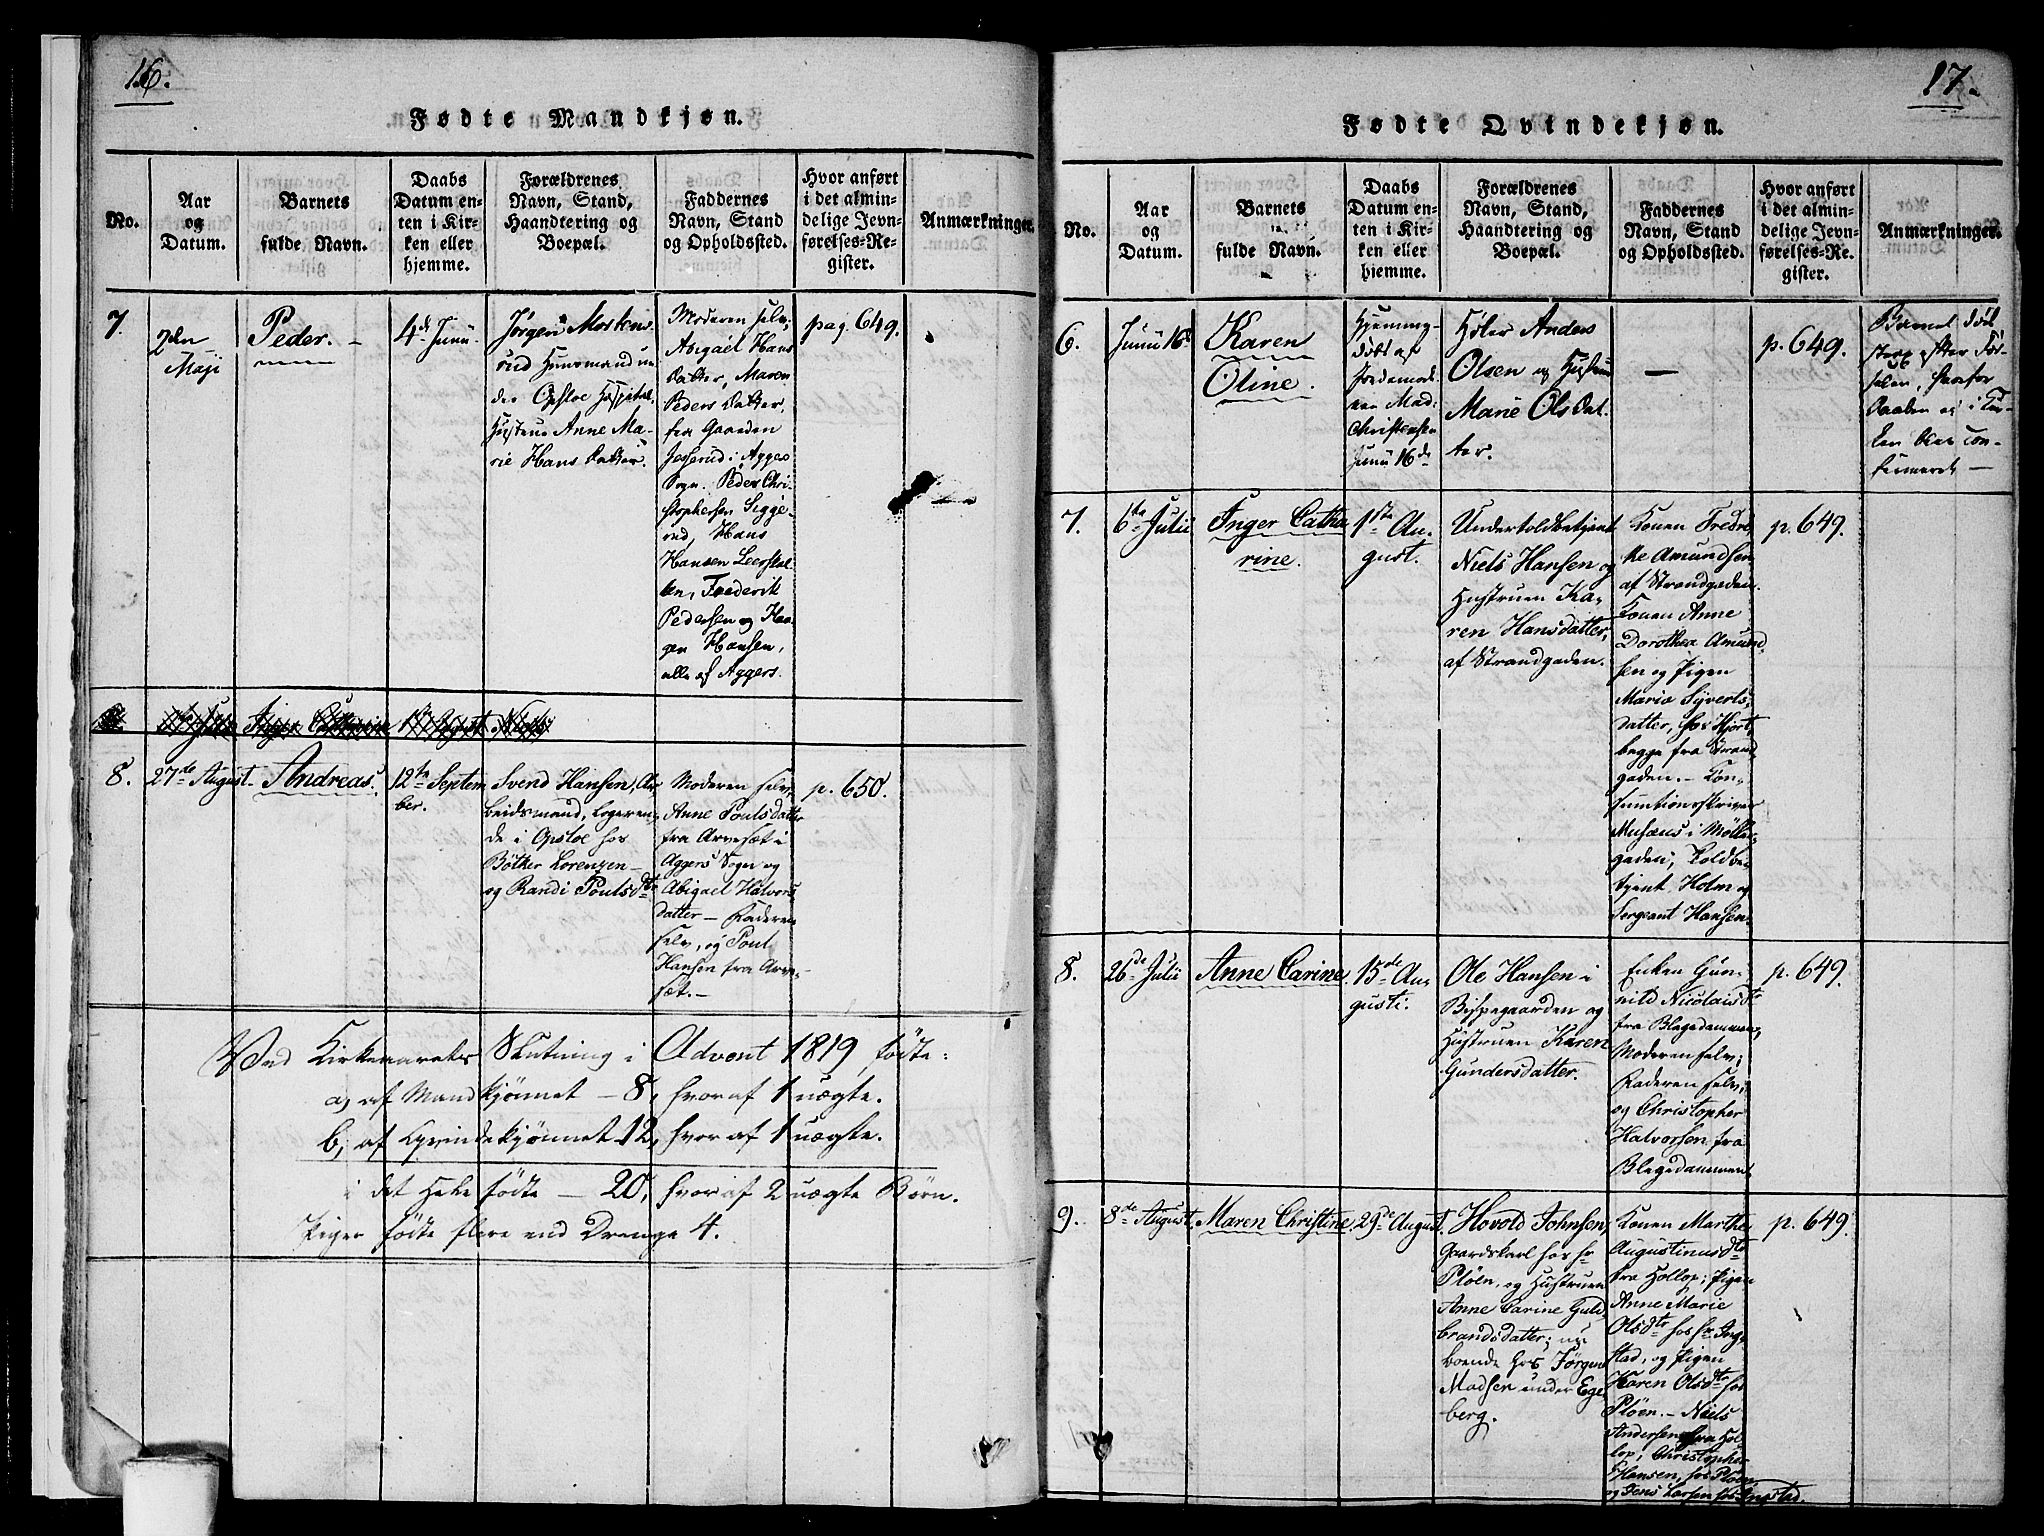 16.
Fødte Mandkjøn.
No.
Aar
og
Datum.
Barnets
fulde Navn.
Daabs
Datum en-
ten i Kir-
ken eller
hjemme.
Forældrenes
Navn, Stand,
Haandtering og
Boepæl.
Faddernes
Navn, Stand
og Opholdssted.
Hvor anført
i det almin-
delige Jevn-
førelses-Re-
gister.
Anmærkninger.
7.
2den
Maji
Peder.
4de Junii
Jørgen Mostens
rud Huusmand un
der Opsloe Hospital.
Hustrue Anne Ma-
rie Hans Datter.
Moderen selv,
Abigael Hans
Datter, Maren
Peders Datter,
fra Gaarden
i Agges
Sogn. Peder Chri-
stophersen Sigge-
rud, Hans
Hansen Leerskal-
len, Frederik
Pedersen og Haa-
gen Hansen,
alle af Aggers.
pag. 649.
8.
27de August
Andreas.
12te Septem
ber.
Svend Hansen, Ar
beidsmand, logeren-
de i Opsloe hos
Bøtker Lorenzen
og Randi Poulsdtr
Moderen selv,
Anne Poulsdatter
fra Arvesæt i
Aggers Sogn og
Abigael Halvors
datter – Faderen
selv, og Poul
Hansen fra Arve-
sæt.–
p. 650.
Ved Kirkeaarets Slutning i Advent 1819, fødte:
a, af Mandkjønnet – 8, hvoraf 1 uægte.
b, af Qvindekjønnet 12, hvoraf 1 uægte.
i det Hele fødte – 20, hvoraf 2 uægte Børn.
Piger fødte flere end Drenge 4.
17.
Fødte Qvindekjøn.
No.
Aar
og
Datum.
Barnets
fulde Navn.
Daabs
Datum en-
ten i Kir-
ken eller
hjemme.
Forældrenes
Navn, Stand,
Haandtering og
Boepæl.
Faddernes
Navn, Stand
og Opholdssted.
Hvor anført
i det almin-
delige Jevn-
førelses-Re-
gister.
Anmærkninger.
6.
Junii 16de
Karen
Oline.
Hjemme-
døbt af
Jordemode-
ren Mad:
Christensen
Junii 16de
Anders
Olsen og Hustrue
Marie Ols Dat
ter.
—
p. 649.
Barnet død
strax efter Fød-
selen, hvorfor
Daaben ei i Kir-
ken blev con-
firmeret –
7.
6te Julii
Inger Catha
rine.
1ste Au-
gust.
Undertoldbetjent
Niels Hansen og
Hustruen Ka-
ren Hansdatter,
af Strandgaden.
Konen Fredri
ke Amundsen
af Strandgaden.
Konen Anne
Dorothea Amund
sen og Pigen
Maria Syverts
datter, hos Hjort,
begge fra Strand
gaden. – Con-
sumtionsskriver
Musæus i Mølle-
gaden, Toldbe-
tjent Holm og
Sergeant Hansen.
p. 649.
8.
26de Julii
Anne Carine.
15de Au-
gusti.
Ole Hansen i
Bispegaarden og
Hustruen Karen
Gundersdatter.
Enken Gun-
nild Nicolaisdtr
fra Blegedammen,
Moderen selv;
Faderen selv,
og Christopher
Halvorsen fra
Blegedammen.
p. 649.
9.
8de August.
Maren Christine
29de August.
Hovold Johnsen,
Gaardskarl hos hr
Pløen, og Hustruen
Anne Carine Guld
brandsdatter; nu
boende hos Jørgen
Madsen under Ege
berg.
Konen Marthe
Augustinusdtr
fra Hollop; Pigen
Anne Marie
Olsdtr hos hr. Ing-
stad, og Pigen
Karen Olsdtr hos
Pløen. – Niels
Andersen fra Hol-
lop, Christopher
Hansen, hos Pløen
og Jens Larsen hos Ingstad.
p. 649.